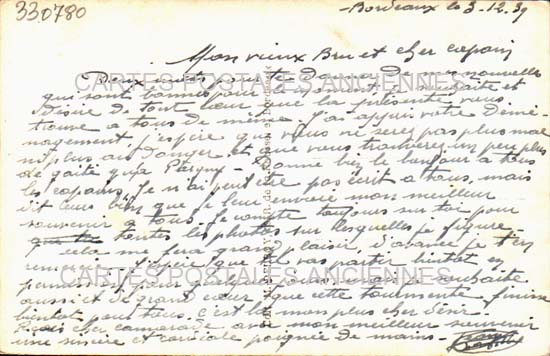 330780
Bordeaux le 3-12-39
Mon vieux Bru et cher copain
Deux mots pour te donner de mes nouvelles
qui sont bonnes pour le moment. Je souhaite et
désire de tout cœur que la présente vous
trouve a tous de même. J'ai appris votre démé-
nagement j'espère que vous ne serez pas plus mal
ni plus au danger et que vous trouverez un peu plus
de gaité qu'a Pargny - Donne bien le bonjour a tous
les copains. Je n'ai peut être pas écrit a tous, mais
dit leurs bien que je leur envoie mon meilleur
souvenir a tous. Je compte toujours sur toi pour
toutes les photos sur lesquelles je figure.
cela me fera grand plaisir, d'avance je t'en
remercie. J'espère que tu vas partir bientot en
perm pour quelques jours, ce que je souhaite
aussi et de grand cœur que cette tourmente finisse
bientot pour tous. c'est là mon plus cher désir.
Reçois cher camarade avec mon meilleur souvenir
une sincère et cordiale poignée de mains -
CARTES POSTALES ANCIENNES
CARTES POSTALES ANCIENNES